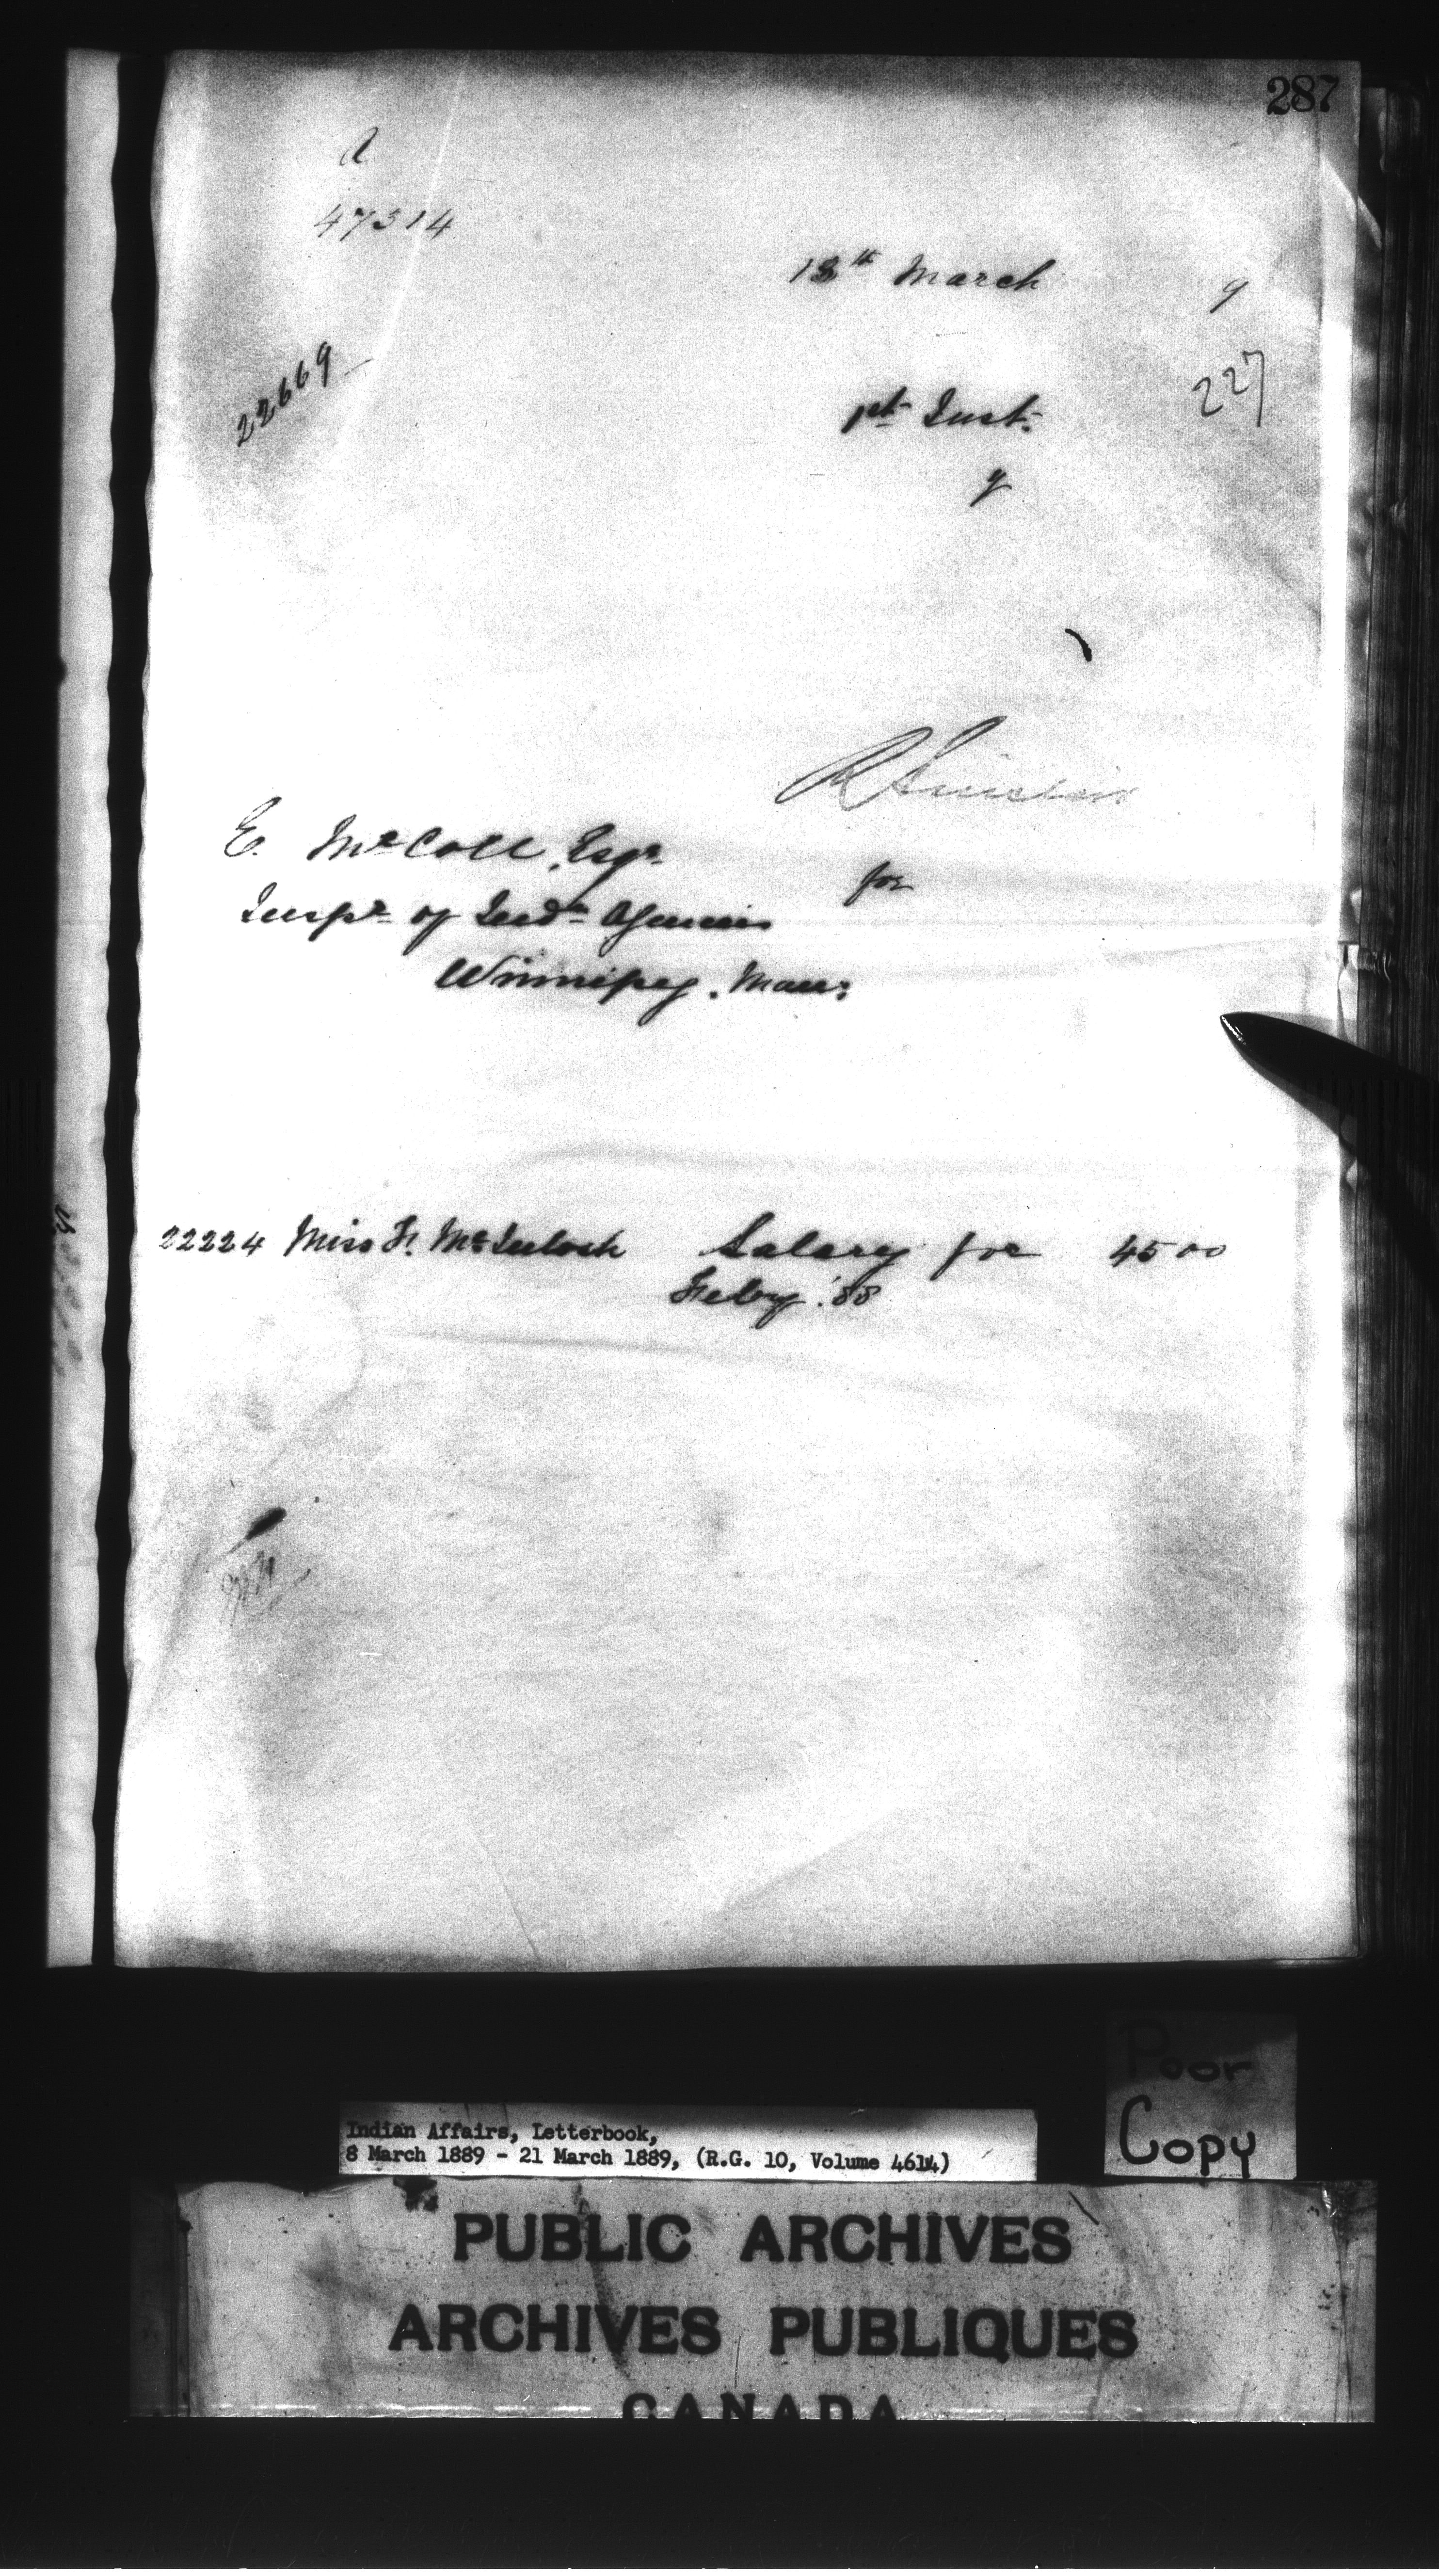 287
A
47314
13th March 9
22669
227
1st Inst.
y
R Sinclair
E. McColl, Esqr.
for
Inspr of Indn Agencies
Winnipeg. Man:
22224 Miss F. McIntosh Salary for 45 00
Feby. '88
Poor
Copy
Indian Affairs, Letterbook,
8 March 1889 - 21 March 1889, (R.G. 10, Volume 4614)
PUBLIC ARCHIVES
ARCHIVES PUBLIQUES
CANADA